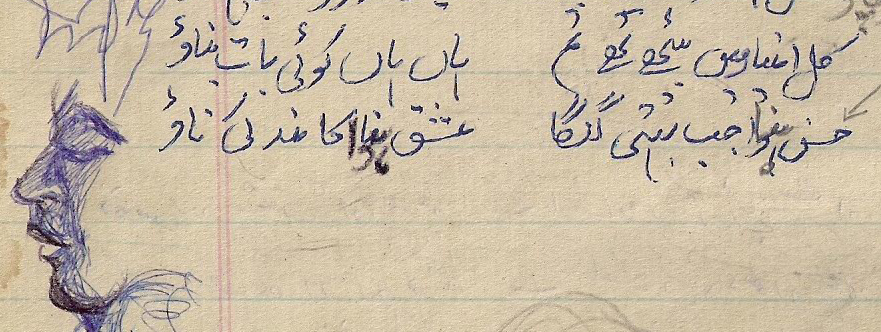 کل اغیار میں بیٹھے تھے تم ہاں ہاں کوئی بات بناؤ
حسن ہوا جب بہتی گنگا عشق ہوا کاغذ کی ناؤ